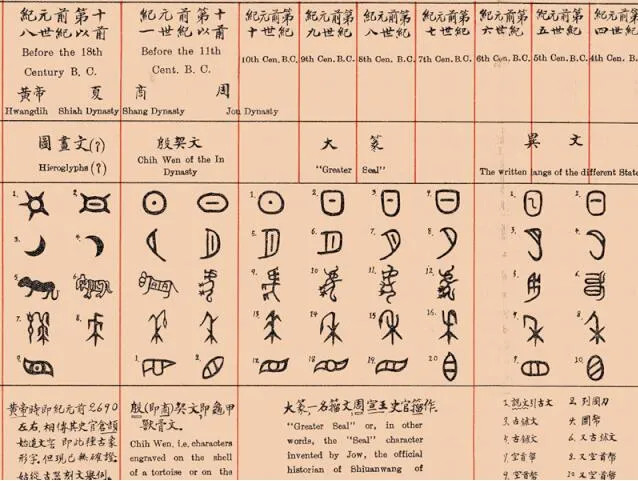 紀元前第十八世紀以前
Before the 18th
Century B. C.
黃帝 夏
Hwangdih Shiah Dynasty
紀元前第十一世紀以前
Before the 11th
Cent. B. C.
商 周
Shang Dynasty Jou Dynasty
紀元前第十世紀
10th Cen. B.C.
紀元前第九世紀
9th Cen. B.C.
紀元前第八世紀
8th Cen. B.C.
紀元前第七世紀
7th Cen. B.C.
紀元前第六世紀
6th Cen. B.C.
紀元前第五世紀
5th Cen. B.C.
紀元前第四世紀
4th Cen. B.C.
圖畫文(?)
Hieroglyphs(?)
殷契文
Chih Wen of the In
Dynasty
大篆
"Greater Seal"
異文
The written langs of the different State
黃帝時即紀元前2690
左右,相傳其史官倉頡
始造文字 即此種古象
形字.但現已無確證.
殷(即商)契文,即龜甲
獸骨文.
Chih Wen, i.e, characters
engraved on the shell
of a tortoise or on the
大篆一名籀文,周宣王史官籀作.
"Greater Seal" or, in other
words, the "Seal" character
invented by Jow, the official
historian of Shiuanwang of
1. 說文引古文
2. 列國刀
3. 古鉢文
4. 古鉢文
6. 又古鉢文
7. 空首幣
8. 又空首幣
9. 空首幣
10. 又空首幣